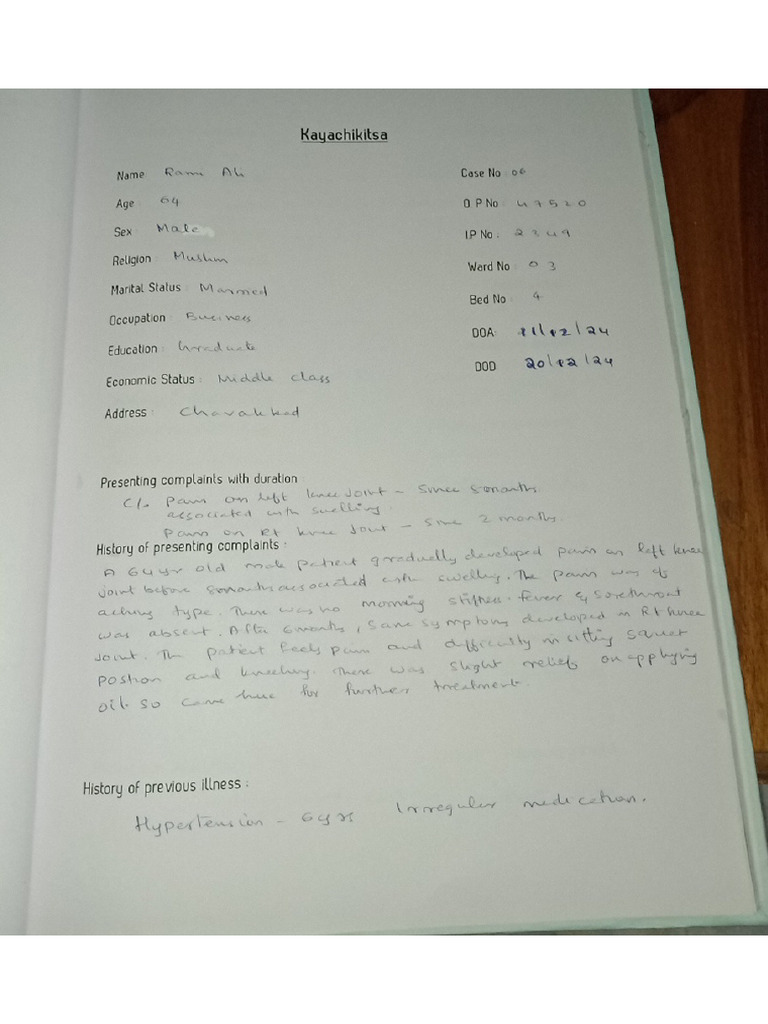 Kayachikitsa
Name Rami Ali
Case No 06
Age 64
O P No : 47520
Sex Male
I.P No : 2349
Religion : Muslim
Ward No 03
Marital Status : Married
Bed No 4
Occupation : Business
DOA: 11/12/24
Education : Graduate
DOD 20/12/24
Economic Status : Middle class
Address : Chavakkad
Presenting complaints with duration
C/o Pain on left knee joint - Since 8 months
associated with swelling.
Pain on Rt knee joint - Sine 2 months.
History of presenting complaints :
A 64 yr old male patient gradually developed pain on left knee
joint before 8 months associated with swelling. The pain was of
aching type. There was no morning stiffness. fever & Sorethroat
was absent. After 6 months, same symptoms developed in Rt knee
joint. The patient feels pain and difficulty in sitting squat
position and kneeling. There was slight relief on applying
oil. So came here for further treatment.
History of previous illness :
Hypertension - 6 yrs Irregular medication.